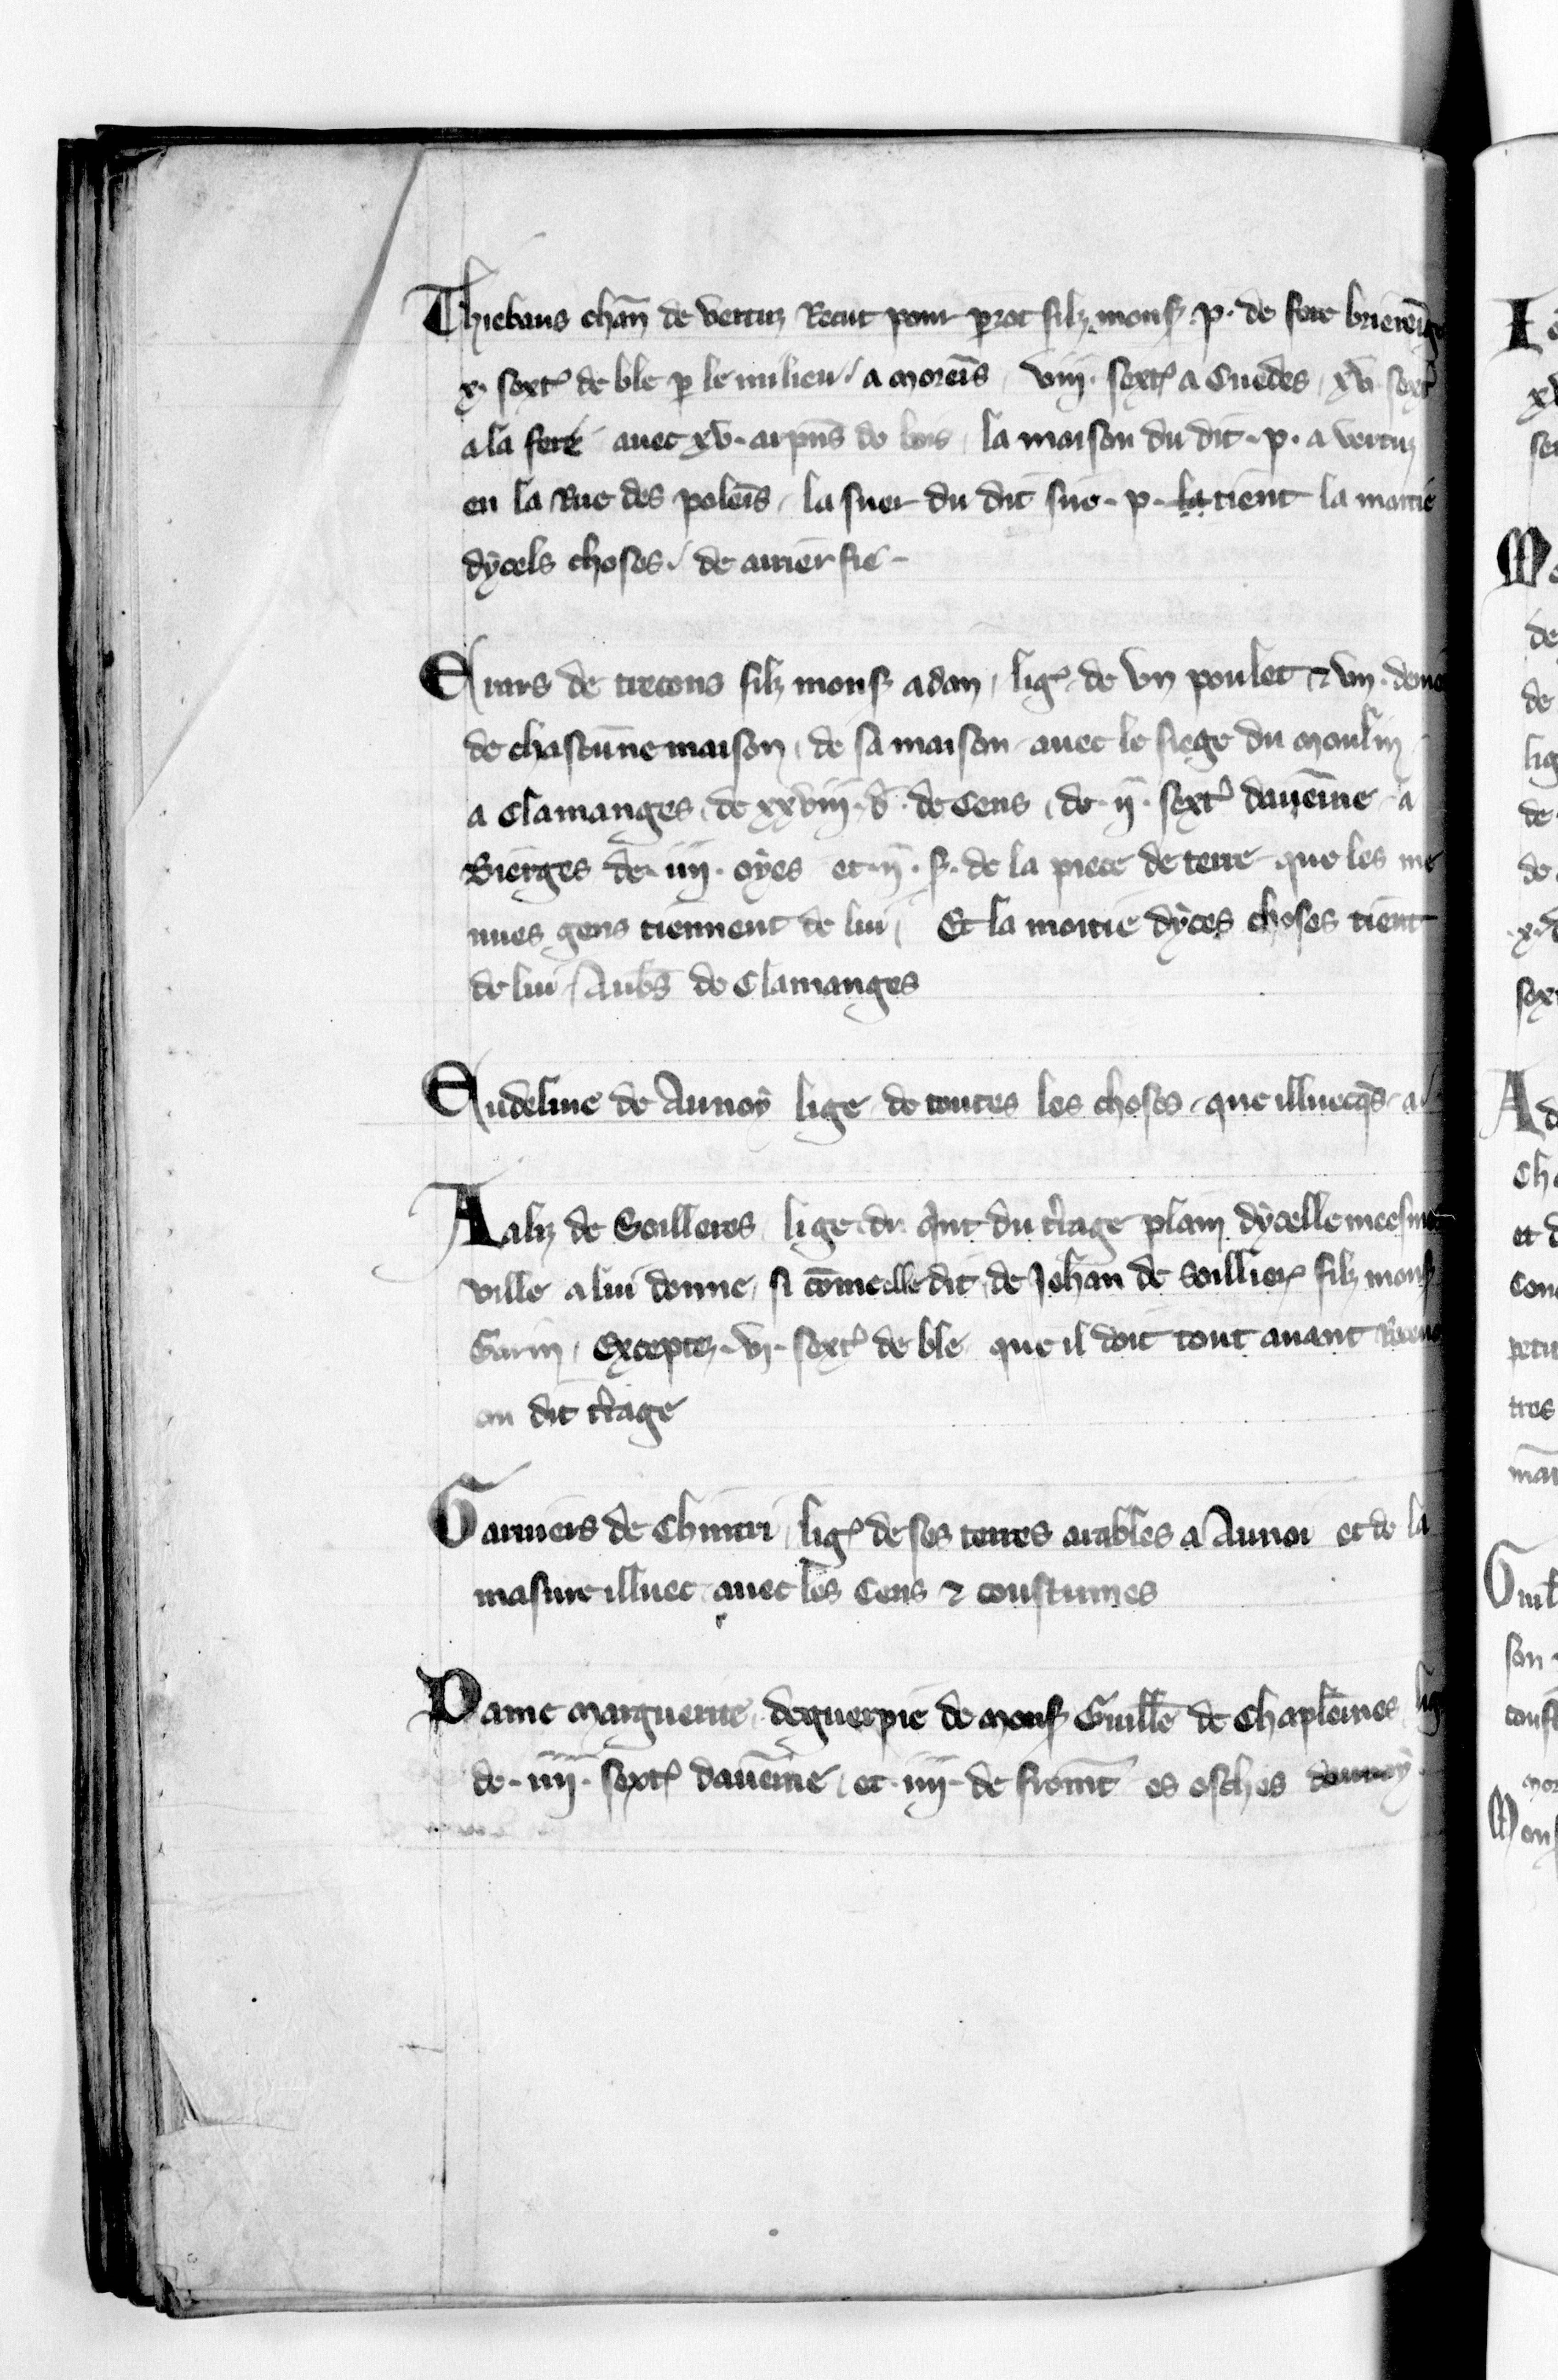 Thiebaus chan̄ de vertuz Recut pour ꝑrot filz monsʳ .p. de fere
x. sext᷑ de ble ꝑ le milieu / a moreīs viij. sext᷑ a Cuedes xv sext᷑
a la fere auec xv. arpn̄s de bois la maison du dit .p. a vertuz
en la Rue des poleīs la suer du dit sire .p. la tient la moitie
dycels choses / de arrier fie
Erars de trecons filz monsʳ adan lig᷑ de vn poulet ⁊ vn
de chascunne maison de sa maison auec le siege du moulin
a Clamanges de xxviij. d. de Cens de .ij. sext᷑ daueinne a
Bierges de iiij. oyes et .ij. s. de la piece de terre que les me
nues gens tiennent de lui Et la moitie dyces choses tient
de lui Aub̄s de Clamanges
Eudeline de Aunoy lige de toutes les choses que illuecq̄s a
Aaliz de Soilleres lige de q̄nt du t̄rage plain dycelle meesme
ville a lui donne si com̄e elle dit de Jehan de Soillier᷑ filz monsʳ
Garin Exceptez .vj. sext᷑ de ble que il doit tout auant
ou dit t̄rage
Garniers de Chintri lig᷑ de ses terres arables a Aunoi et de la
masure illuec auec les Cens ⁊ coustumes
Dame marguerite deguerpie de monsʳ Guille de Chapleines lig
de .iiij. sext᷑ daueinne et .iiij. de fromt̄ es osches daunoy